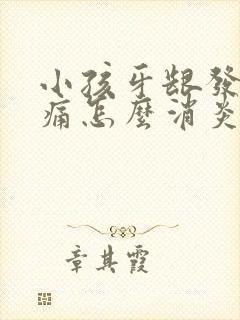 小孩牙龈發
痛怎麼消炎
章其霞